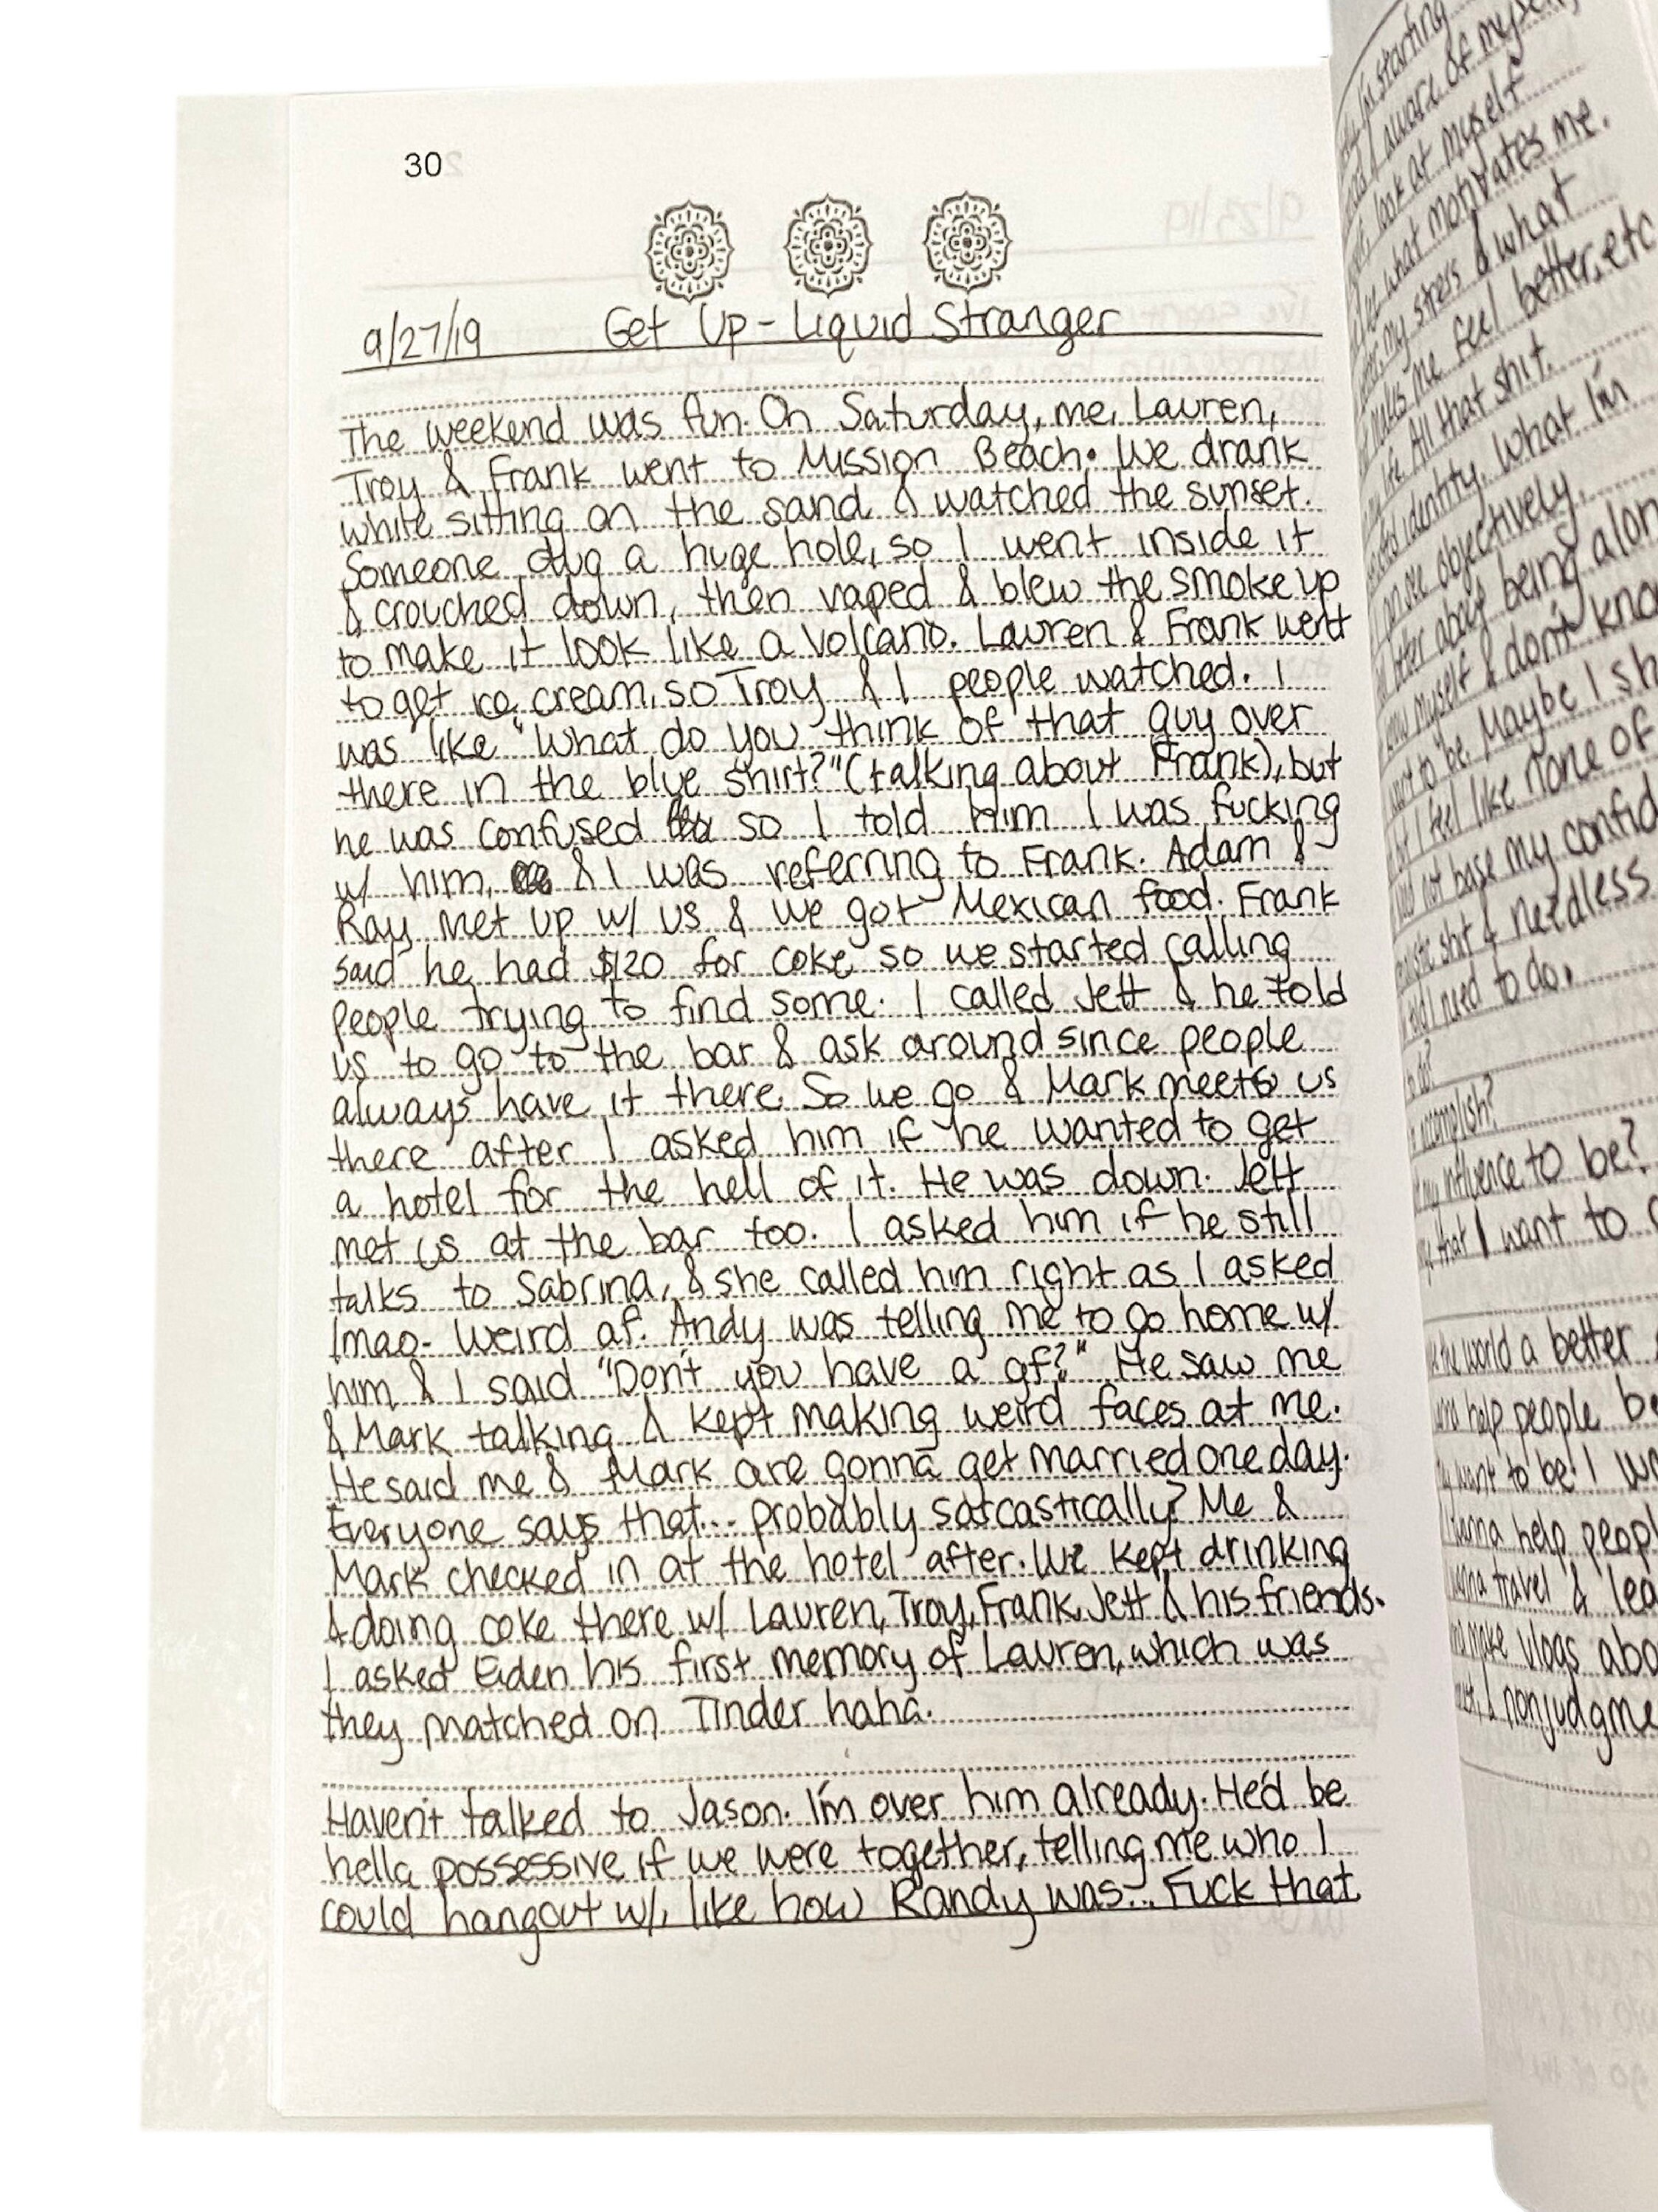 30
9/27/19 Get Up - Liquid Stranger
The weekend was fun. On Saturday, me, Lauren,
Troy & Frank went to Mission Beach. We drank
while sitting on the sand & watched the sunset.
Someone dug a huge hole, so I went inside it
& crouched down, then vaped & blew the smoke up
to make it look like a volcano. Lauren & Frank went
to get ice cream, so Troy & I people watched. I
was like "What do you think of that guy over
there in the blue shirt?" (talking about Frank), but
he was confused so I told him I was fucking
w/ him, & I was referring to Frank. Adam &
Ray met up w/ us & we got Mexican food. Frank
said he had $120 for coke so we started calling
people trying to find some. I called Jett & he told
us to go to the bar & ask around since people
always have it there. So we go & Mark meets us
there after I asked him if he wanted to get
a hotel for the hell of it. He was down. Jett
met us at the bar too. I asked him if he still
talks to Sabrina, & she called him right as I asked
lmao- weird af. Andy was telling me to go home w/
him & I said "Don't you have a gf?" He saw me
& Mark talking & kept making weird faces at me.
He said me & Mark are gonna get married one day.
Everyone says that... probably sarcastically? Me &
Mark checked in at the hotel after. We kept drinking
& doing coke there w/ Lauren, Troy, Frank, Jett & his friends.
I asked Eiden his first memory of Lauren, which was
they matched on Tinder haha.
Haven't talked to Jason. I'm over him already. He'd be
hella possessive if we were together, telling me who I
could hangout w/, like how Randy was... Fuck that
I'm starting
aware of myself,
look at myself
what motivates me.
my stress & what
makes me feel better, etc
my life. All that shit.
identity. What I'm
can see objectively.
better about being alon
know myself & don't kno
want to be. Maybe I sh
but I feel like none of
not base my confid
shit & needless
told I need to do.
to do?
accomplish?
my influence to be?
that I want to
the world a better
help people be
want to be! I wa
wanna help peopl
wanna travel & lea
make vlogs abo
& nonjudgme